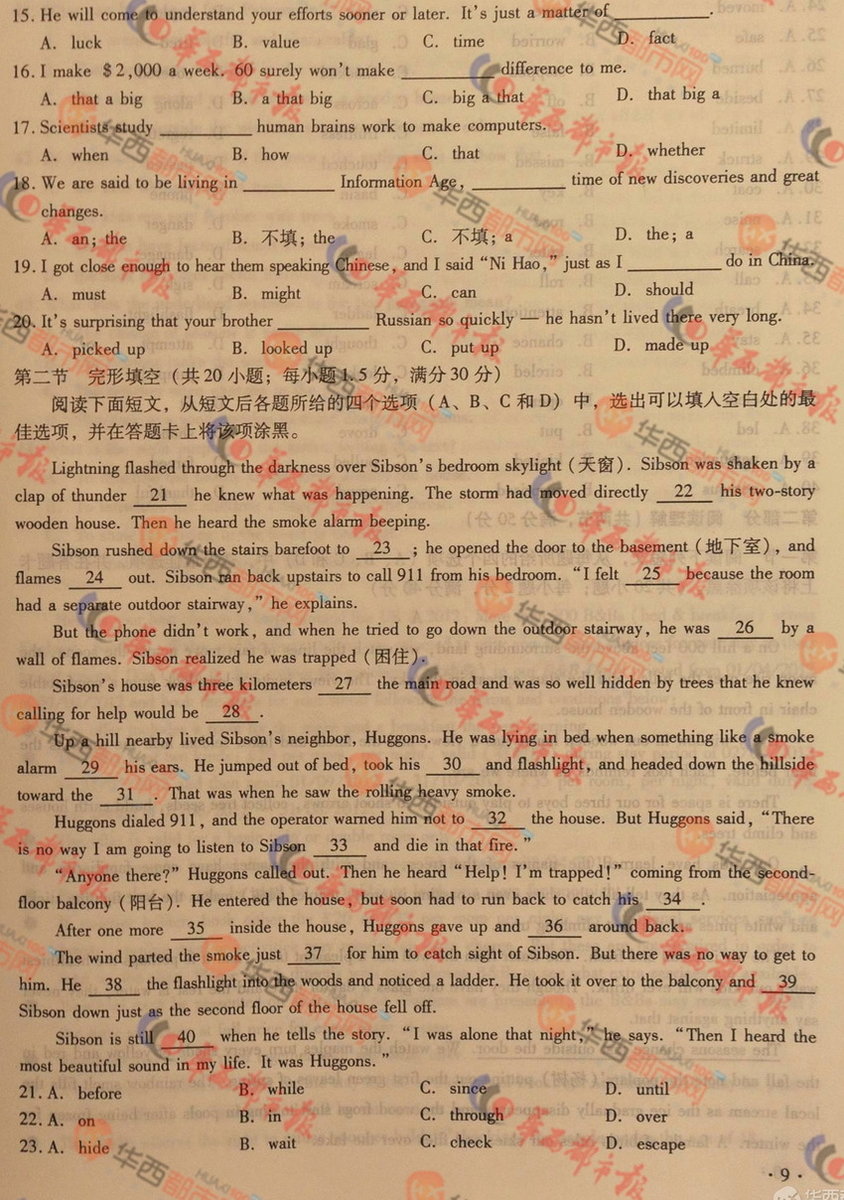 15. He will come to understand your efforts sooner or later. It's just a matter of __________.
A. luck B. value C. time D. fact
16. I make $2,000 a week. 60 surely won't make __________ difference to me.
A. that a big B. a that big C. big a that D. that big a
17. Scientists study __________ human brains work to make computers.
A. when B. how C. that D. whether
18. We are said to be living in __________ Information Age, __________ time of new discoveries and great
changes.
A. an; the B. 不填; the C. 不填; a D. the; a
19. I got close enough to hear them speaking Chinese, and I said "Ni Hao," just as I __________ do in China.
A. must B. might C. can D. should
20. It's surprising that your brother __________ Russian so quickly — he hasn't lived there very long.
A. picked up B. looked up C. put up D. made up
第二节 完形填空(共20小题;每小题1.5分,满分30分)
阅读下面短文,从短文后各题所给的四个选项(A、B、C和D)中,选出可以填入空白处的最
佳选项,并在答题卡上将该项涂黑。
Lightning flashed through the darkness over Sibson's bedroom skylight (天窗). Sibson was shaken by a
clap of thunder 21 he knew what was happening. The storm had moved directly 22 his two-story
wooden house. Then he heard the smoke alarm beeping.
Sibson rushed down the stairs barefoot to 23 ; he opened the door to the basement (地下室), and
flames 24 out. Sibson ran back upstairs to call 911 from his bedroom. "I felt 25 because the room
had a separate outdoor stairway," he explains.
But the phone didn't work, and when he tried to go down the outdoor stairway, he was 26 by a
wall of flames. Sibson realized he was trapped (困住).
Sibson's house was three kilometers 27 the main road and was so well hidden by trees that he knew
calling for help would be 28 .
Up a hill nearby lived Sibson's neighbor, Huggons. He was lying in bed when something like a smoke
alarm 29 his ears. He jumped out of bed, took his 30 and flashlight, and headed down the hillside
toward the 31 . That was when he saw the rolling heavy smoke.
Huggons dialed 911, and the operator warned him not to 32 the house. But Huggons said, "There
is no way I am going to listen to Sibson 33 and die in that fire."
"Anyone there?" Huggons called out. Then he heard "Help! I'm trapped!" coming from the second-
floor balcony (阳台). He entered the house, but soon had to run back to catch his 34 .
After one more 35 inside the house, Huggons gave up and 36 around back.
The wind parted the smoke just 37 for him to catch sight of Sibson. But there was no way to get to
him. He 38 the flashlight into the woods and noticed a ladder. He took it over to the balcony and 39
Sibson down just as the second floor of the house fell off.
Sibson is still 40 when he tells the story. "I was alone that night," he says. "Then I heard the
most beautiful sound in my life. It was Huggons."
21. A. before B. while C. since D. until
22. A. on B. in C. through D. over
23. A. hide B. wait C. check D. escape
· 9 ·
华西都市报